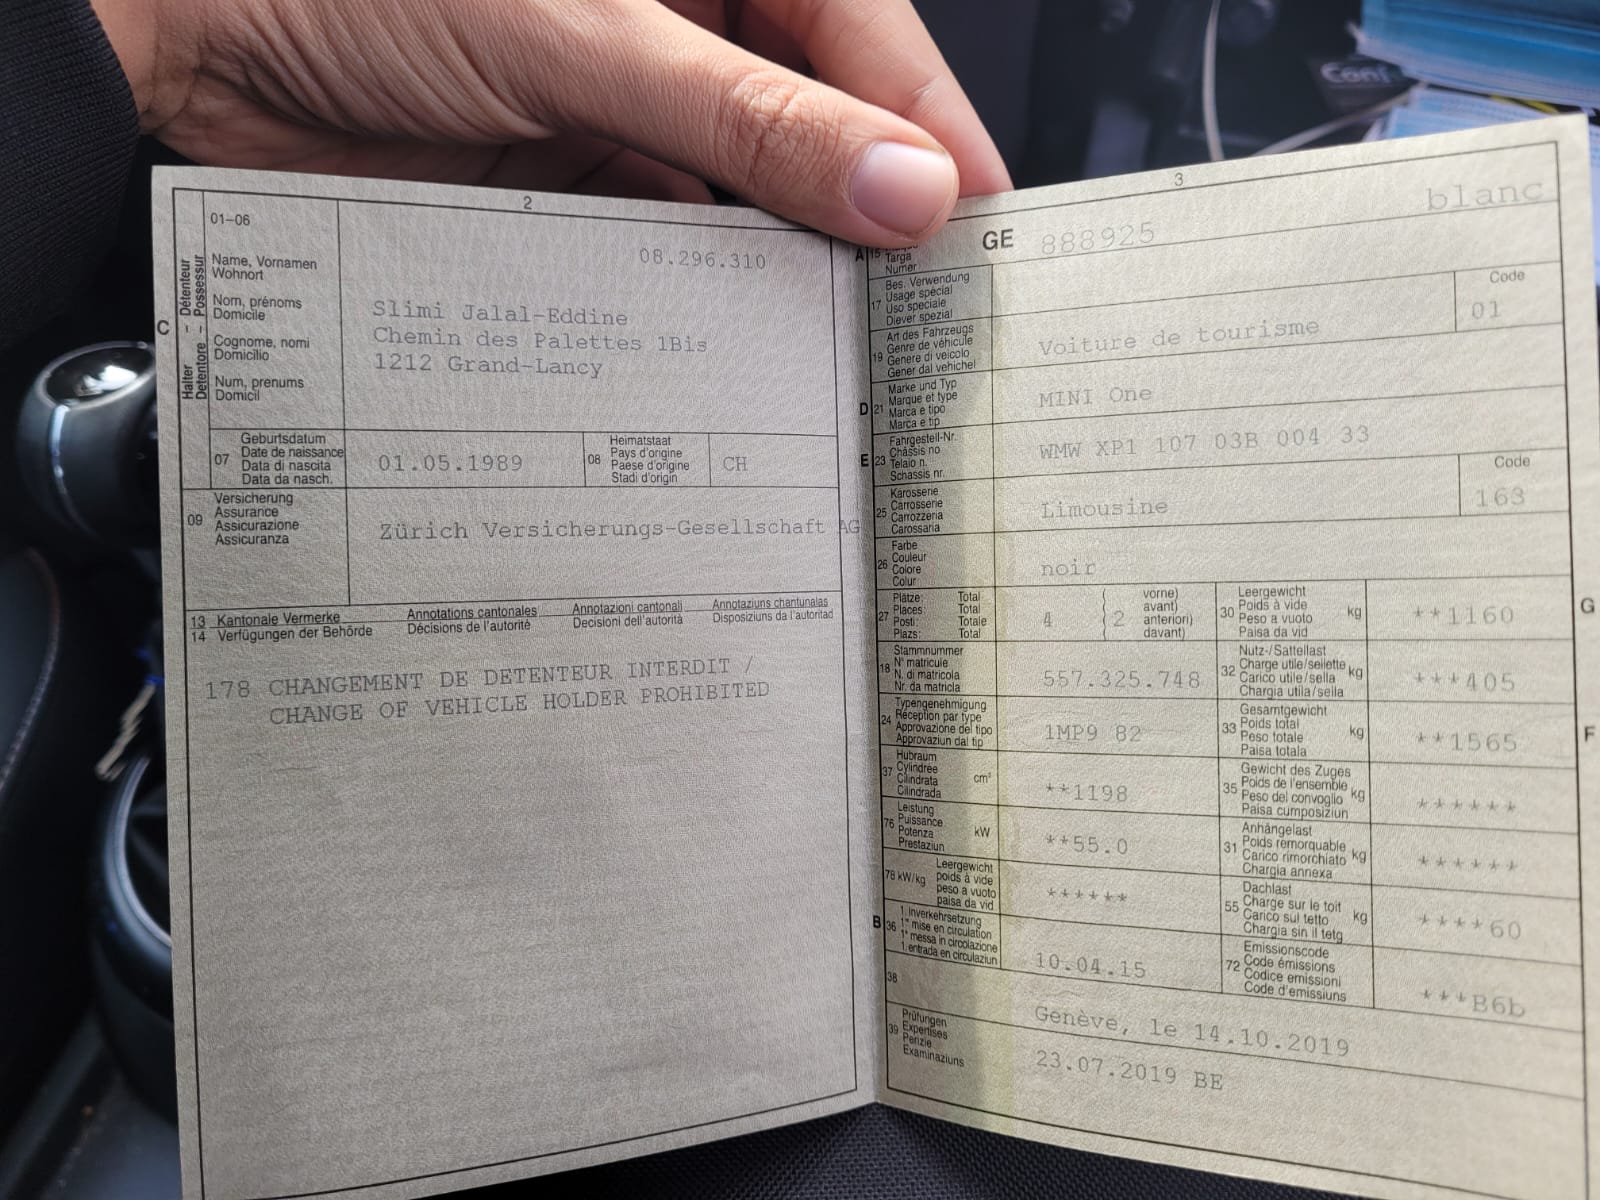 2
01-06
Halter - Détenteur
Detentore - Possessur
C
Name, Vornamen
Wohnort
Nom, prénoms
Domicile
Cognome, nomi
Domicilio
Num, prenums
Domicil
08.296.310
Slimi Jalal-Eddine
Chemin des Palettes 1Bis
1212 Grand-Lancy
07
Geburtsdatum
Date de naissance
Data di nascita
Data da nasch.
01.05.1989
08
Heimatstaat
Pays d'origine
Paese d'origine
Stadi d'origin
CH
09
Versicherung
Assurance
Assicurazione
Assicuranza
Zürich Versicherungs-Gesellschaft AG
13 Kantonale Vermerke Annotations cantonales Annotazioni cantonali Annotaziuns chantunalas
14 Verfügungen der Behörde Décisions de l'autorité Decisioni dell'autorità Disposiziuns da l'autoritad
178 CHANGEMENT DE DETENTEUR INTERDIT /
CHANGE OF VEHICLE HOLDER PROHIBITED
3
blanc
A 15
Targa
Numer
GE 888925
17
Bes. Verwendung
Usage spécial
Uso speciale
Diever spezial
19
Art des Fahrzeugs
Genre de véhicule
Genere di veicolo
Gener dal vehichel
Voiture de tourisme
Code
01
D 21
Marke und Typ
Marque et type
Marca e tipo
Marca e tip
MINI One
E 23
Fahrgestell-Nr.
Châssis no
Telaio n.
Schassis nr.
WMW XP1 107 03B 004 33
25
Karosserie
Carrosserie
Carrozzeria
Carossaria
Limousine
Code
163
26
Farbe
Couleur
Colore
Colur
noir
27
Plätze: Total
Places: Total
Posti: Totale
Plazs: Total
4
( 2
vorne)
avant)
anteriori)
davant)
30
Leergewicht
Poids à vide
Peso a vuoto
Paisa da vid
kg
**1160
G
18
Stammnummer
N° matricule
N. di matricola
Nr. da matricla
557.325.748
32
Nutz-/Sattellast
Charge utile/sellette
Carico utile/sella
Chargia utila/sella
kg
***405
24
Typengenehmigung
Réception par type
Approvazione del tipo
Approvaziun dal tip
1MP9 82
33
Gesamtgewicht
Poids total
Peso totale
Paisa totala
kg
**1565
F
37
Hubraum
Cylindrée
Cilindrata
Cilindrada
cm³
**1198
35
Gewicht des Zuges
Poids de l'ensemble
Peso del convoglio
Paisa cumposiziun
kg
******
76
Leistung
Puissance
Potenza
Prestaziun
kW
**55.0
31
Anhängelast
Poids remorquable
Carico rimorchiato
Chargia annexa
kg
******
78 kW/kg
Leergewicht
poids à vide
peso a vuoto
paisa da vid
******
55
Dachlast
Charge sur le toit
Carico sul tetto
Chargia sin il tetg
kg
****60
B 36
1. Inverkehrsetzung
1re mise en circulation
1a messa in circolazione
1. entrada en circulaziun
10.04.15
72
Emissionscode
Code émissions
Codice emissioni
Code d'emissiuns
***B6b
38
Genève, le 14.10.2019
39
Prüfungen
Expertises
Perizie
Examinaziuns
23.07.2019 BE